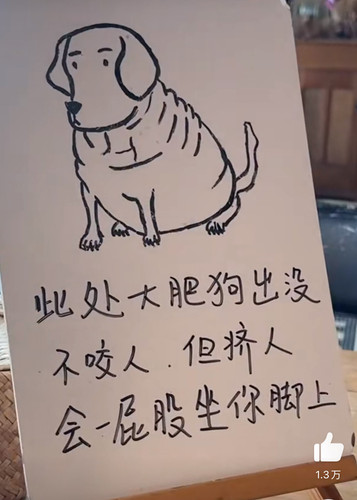 此处大肥狗出没
不咬人.但挤人
会一屁股坐你脚上
1.3万